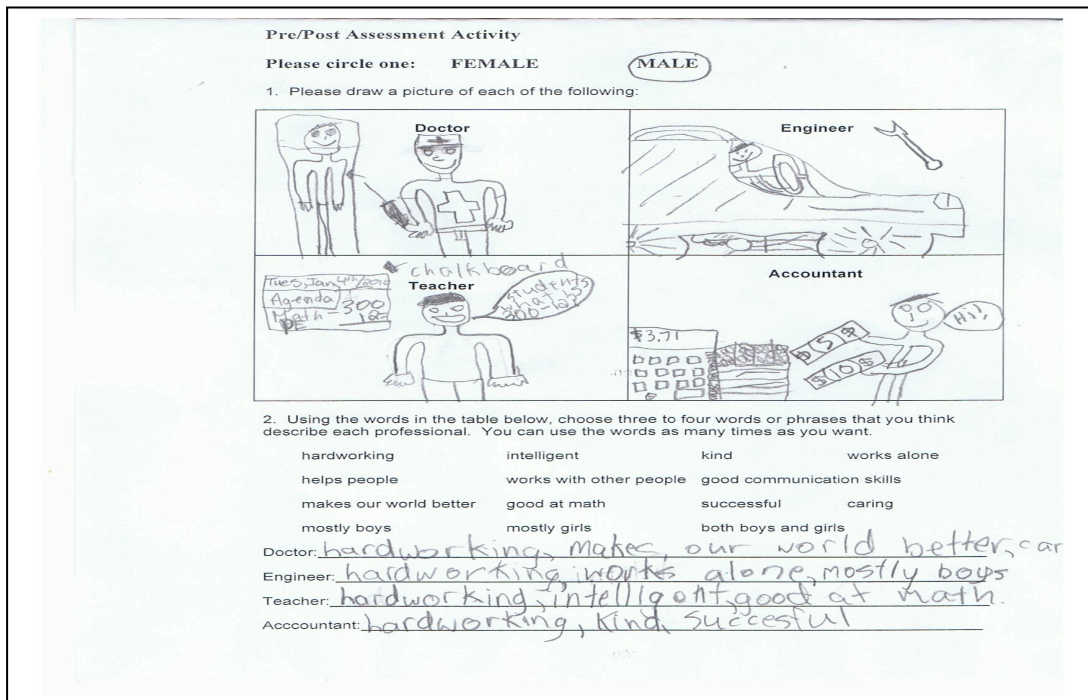 Pre/Post Assessment Activity
Please circle one: FEMALE MALE
1. Please draw a picture of each of the following:
Doctor
Engineer
chalkboard
Teacher
Tues, Jan 4th/2010
Agenda
Math - 300
PE 12=
Students
what's
300-12?
Accountant
$3.71
$5$
$10$
Hi!
2. Using the words in the table below, choose three to four words or phrases that you think
describe each professional. You can use the words as many times as you want.
hardworking intelligent kind works alone
helps people works with other people good communication skills
makes our world better good at math successful caring
mostly boys mostly girls both boys and girls
Doctor: hardworking, makes, our world better, car
Engineer: hardworking, works alone, mostly boys
Teacher: hardworking, intelligent, good at math.
Acccountant: hardworking, kind, succesful